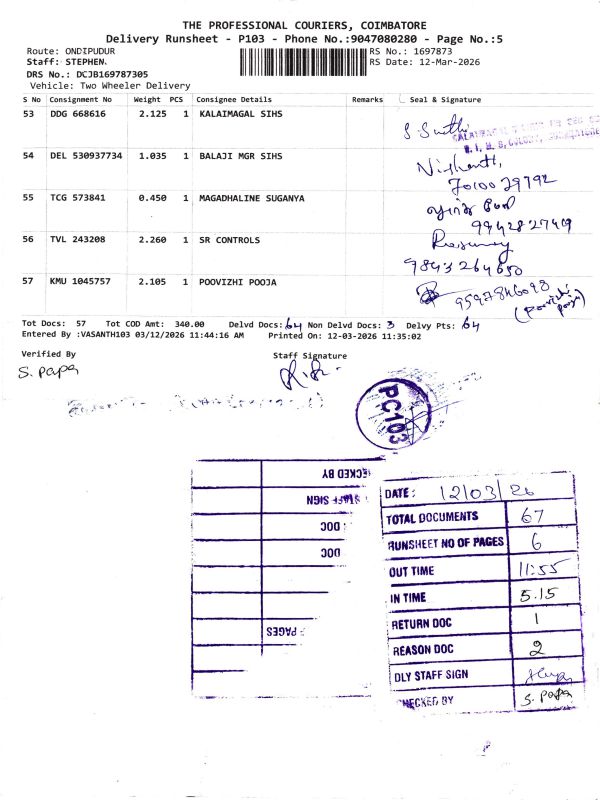 THE PROFESSIONAL COURIERS, COIMBATORE
Delivery Runsheet - P103 - Phone No.:9047080280 - Page No.:5
Route: ONDIPUDUR
RS No.: 1697873
Staff: STEPHEN.
RS Date: 12-Mar-2026
DRS No.: DCJB169787305
Vehicle: Two Wheeler Delivery
S No Consignment No Weight PCS Consignee Details Remarks Seal & Signature
53 DDG 668616 2.125 1 KALAIMAGAL SIHS
54 DEL 530937734 1.035 1 BALAJI MGR SIHS
7010029792
55 TCG 573841 0.450 1 MAGADHALINE SUGANYA
9942827419
56 TVL 243208 2.260 1 SR CONTROLS
9843264650
57 KMU 1045757 2.105 1 POOVIZHI POOJA
(Poovizhi
pooja)
Tot Docs: 57 Tot COD Amt: 340.00 Delvd Docs: 64 Non Delvd Docs: 3 Delvy Pts: 64
Entered By :VASANTH103 03/12/2026 11:44:16 AM Printed On: 12-03-2026 11:35:02
Verified By Staff Signature
S. Papa
PC103
CKED BY
SIGN
DOC
DOC
PAGES
DATE: 12/03/26
TOTAL DOCUMENTS 67
RUNSHEET NO OF PAGES 6
OUT TIME 11:55
IN TIME 5.15
RETURN DOC 1
REASON DOC 2
DLY STAFF SIGN
CHECKED BY S. Papa